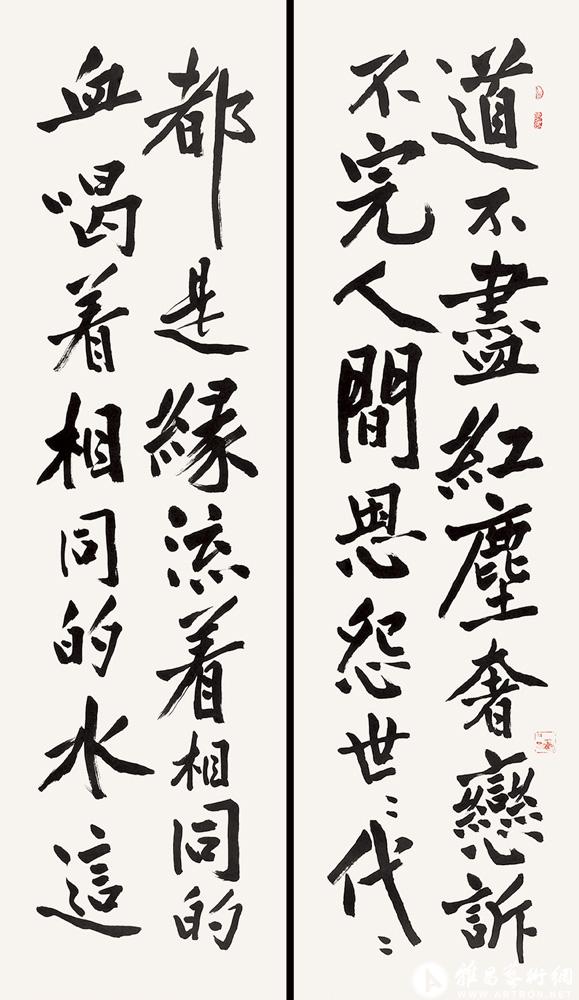 道不盡紅塵奢戀訴
不完人間恩怨世〻代〻
都是緣流着相同的
血喝着相同的水這
雅昌艺术网
WWW.ARTRON.NET